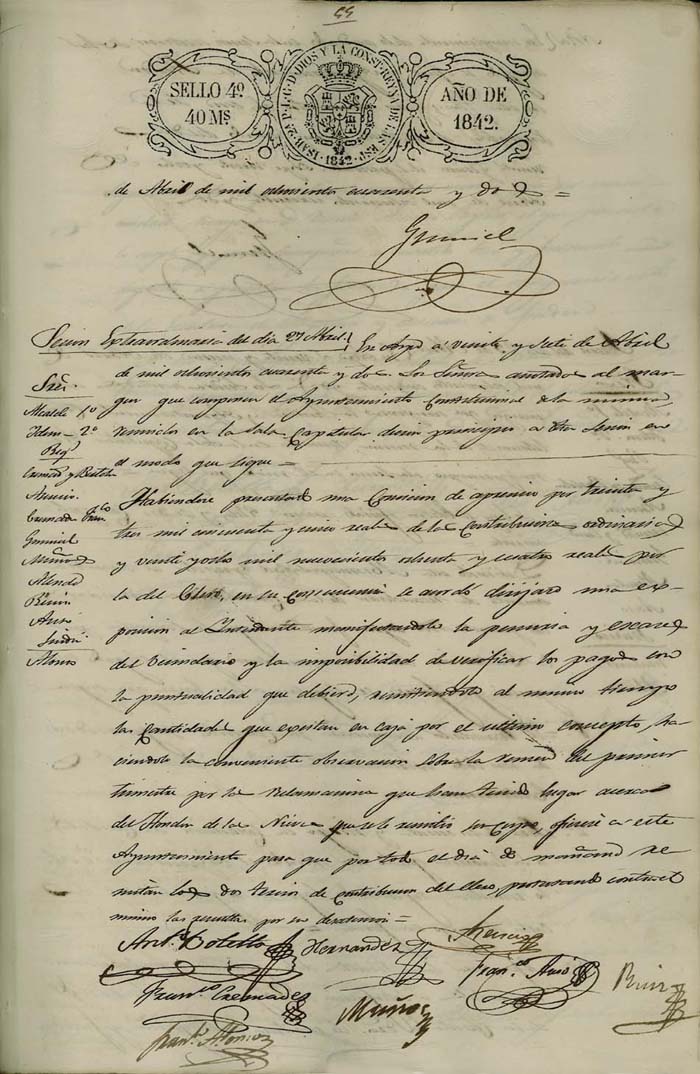 55
SELLO 4º
40 Mˢ
ISAB. 2ª P. L. G. D. DIOS Y LA CONST. REYNA DE LAS ESP.
1842
AÑO DE
1842.
de Abril de mil ochocientos cuarenta y dos =
Gumiel
Sesion Extraordinaria del dia 27 Abril.
Sres.
Alcalde 1º
Idem - 2º
Regs
Cremades y Botella
Asencio
Cremades Franco
Gumiel
Muños
Alonso
En Aspe a veinte y siete de Abril
de mil ochocientos cuarenta y dos Los Señores anotados al mar-
gen que componen el Ayuntamiento Constitucional de la misma,
reunidos en la Sala Capitular dieron principio a esta Sesion en
el modo que sigue =
Habiendose presentado una Comision de apremio por treinta y
tres mil cincuenta y cinco reales de la Contribucion ordinaria,
y veinte y ocho mil novecientos ochenta y cuatro reales por
la del Clero, en su consecuencia se acordó dirijase una ex-
posicion al Intendente manifestandole la penuria y escases
del vecindario y la imposibilidad de verificar los pagos con
la puntualidad que debiera, remitiendole al mismo tiempo
las Cantidades que existan en caja por el ultimo concepto, ha-
ciendole la conveniente observacion sobre la remesa del primer
trimestre por las reclamaciones que han tenido lugar acerca
del Hondon de las Nieves que se le remitio, oficiese a este
Ayuntamiento para que por todo el dia de mañana re-
mitan los dos tercios de Contribucion del Clero, protestando contra el
mismo las resultas por su desatencion =
Antº Botella
Hernandez
Asencio
Franco Cremades
Muños
Franco
Ruiz
Franco Alonso